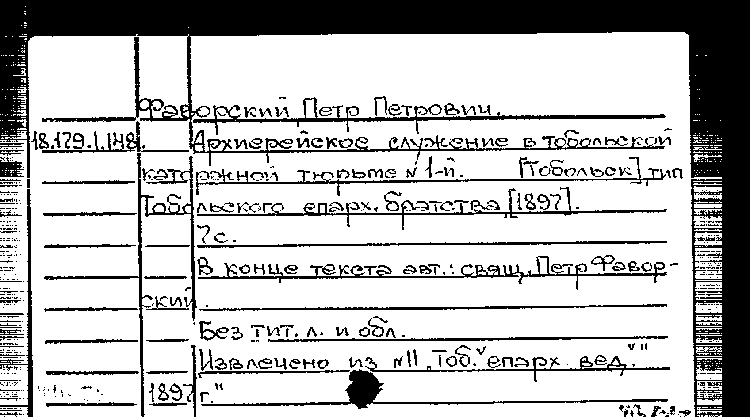 Фаворский Петр Петрович.
18.179.1.148. Архиерейское служение в тобольской
каторжной тюрьме №1-й. [Тобольск], тип
Тобольского епарх. братства, [1897].
7с.
В конце текста авт.: свящ. Петр Фавор-
ский.
Без тит. л. и обл.
Извлечено из №11 "Тоб. епарх. вед."
1897 г."